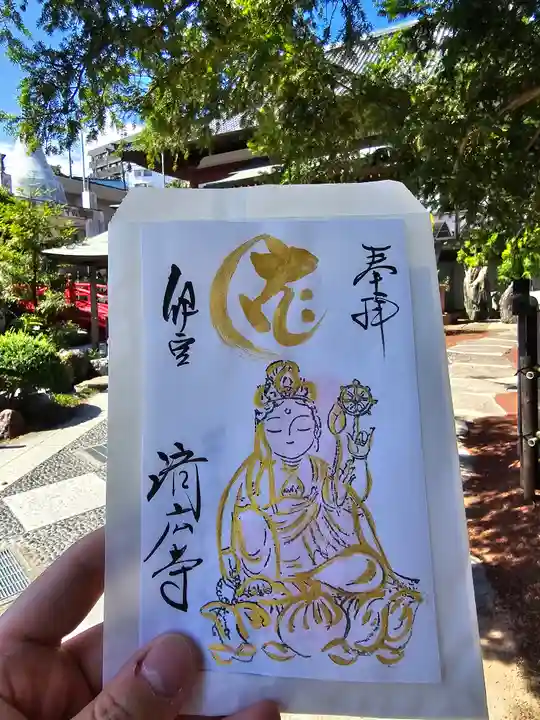 奉拝
伊豆
済広寺